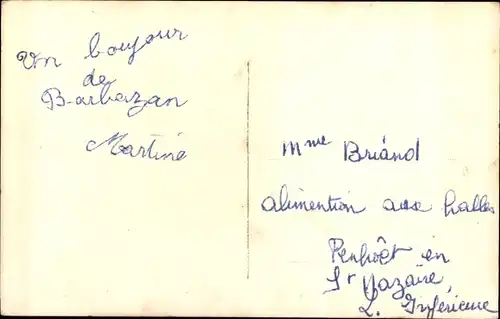 Un boujour
de
Barbazan
Martine
Mme Briand
alimention aux halles
Penhoët en
St Nazaire,
L. Inférieure